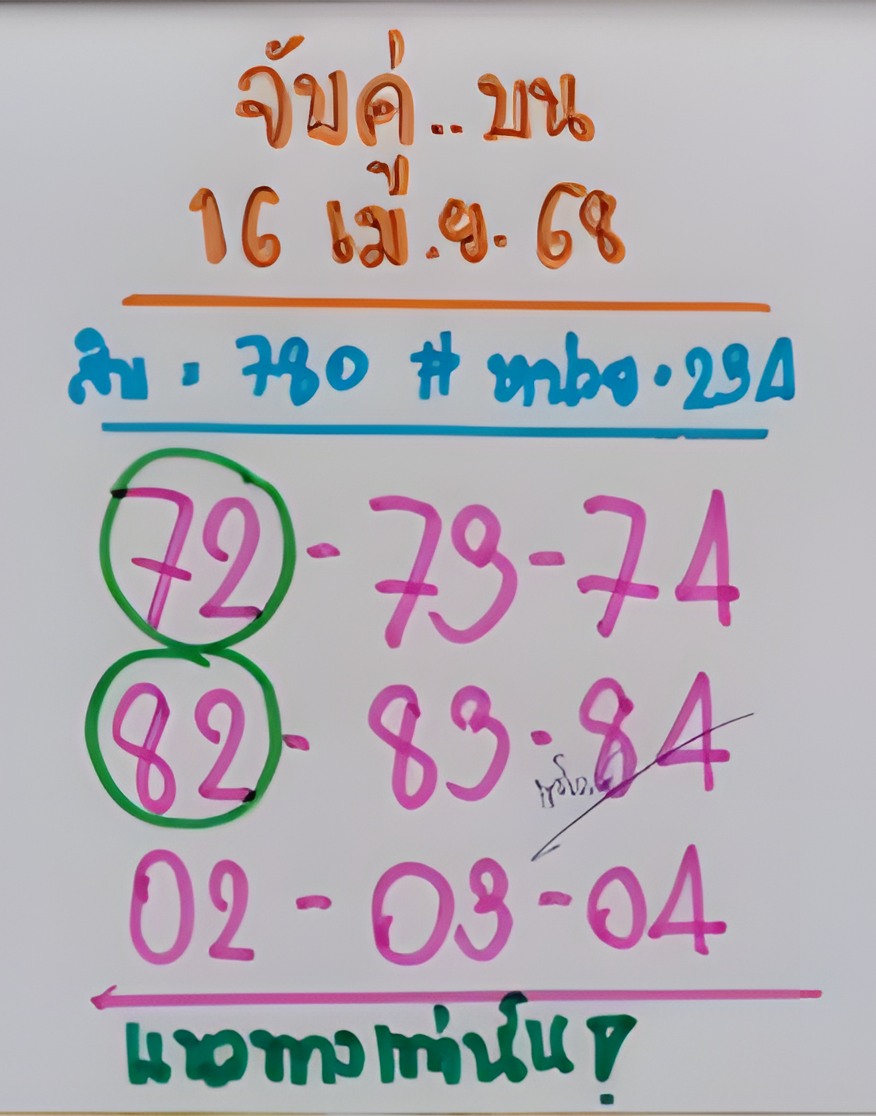 จับคู่..บน
16 เม.ย. 68
สิบ . 780 # หน่วย . 234
72 - 73 - 74
82 - 83 - 84
02 - 03 - 04
แนวทางเท่านั้น !